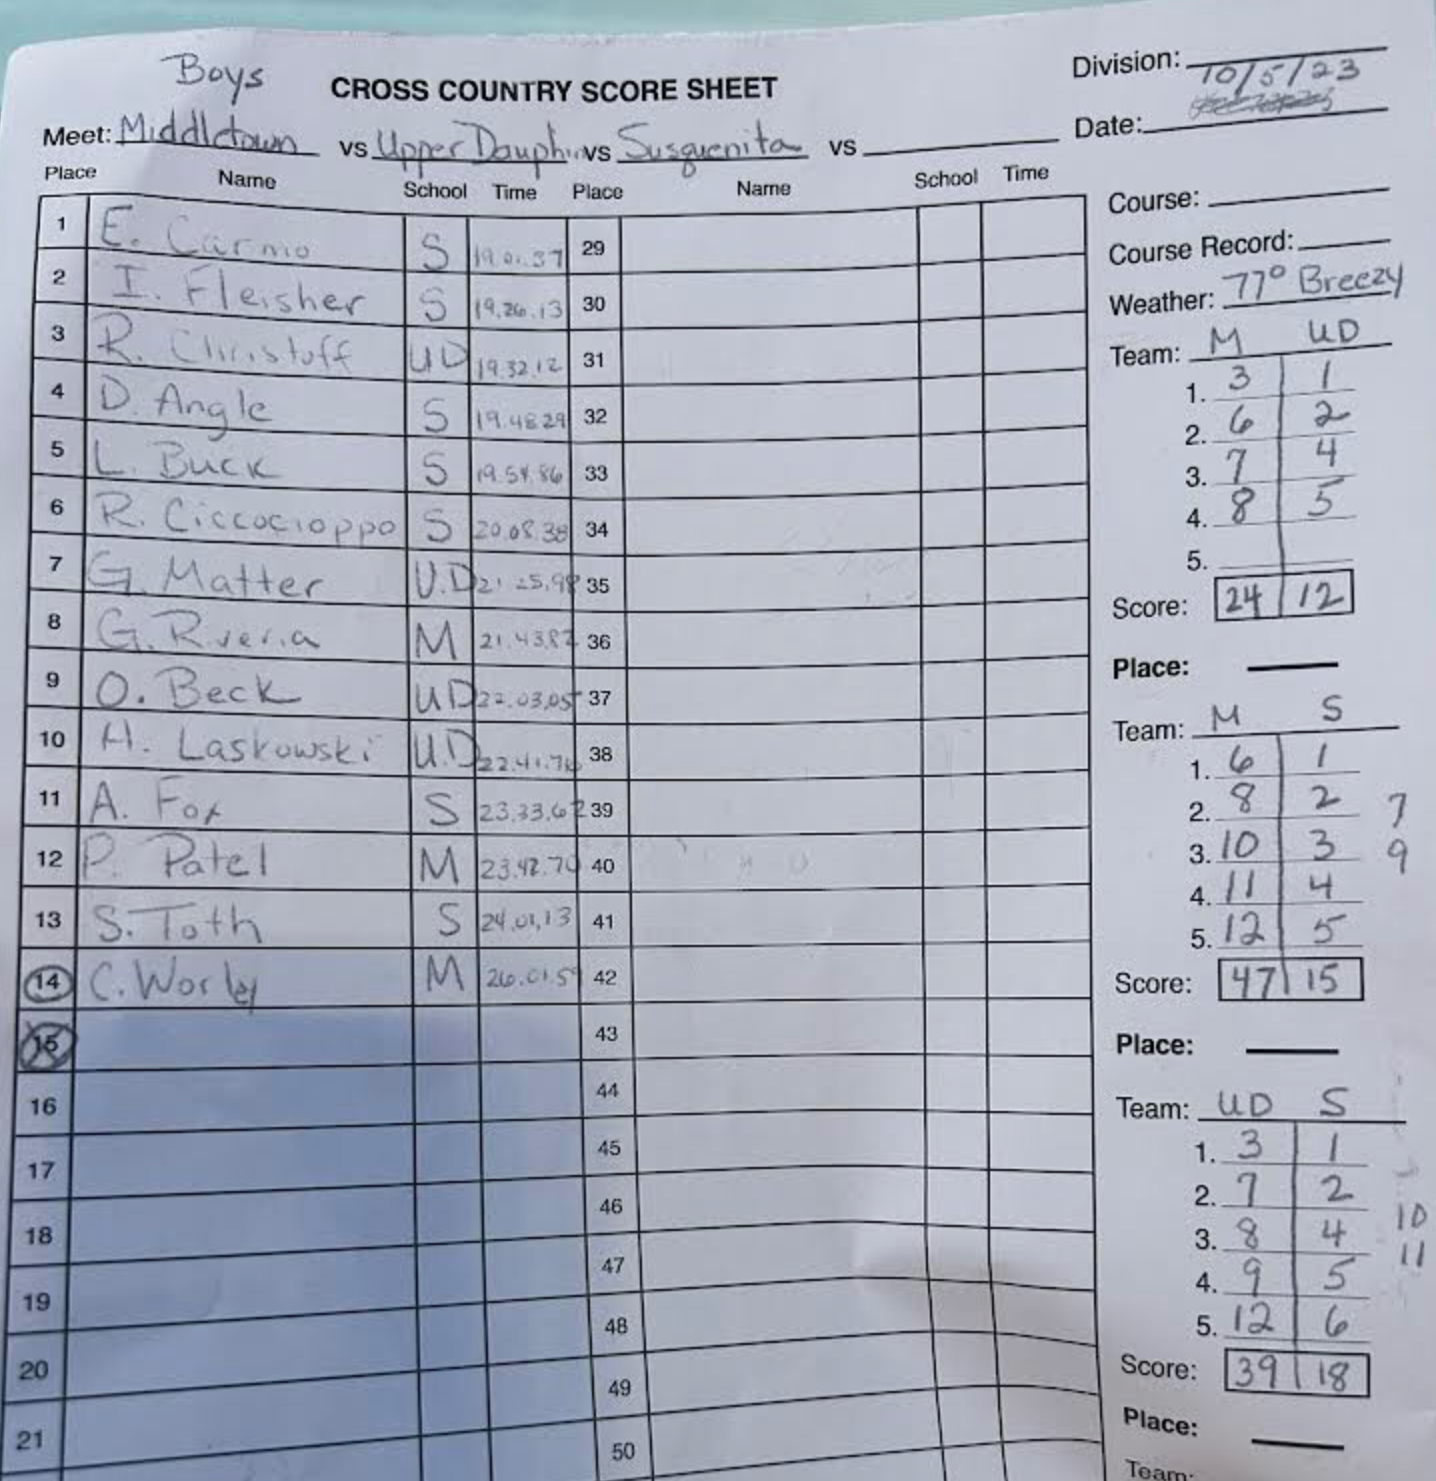 Boys
CROSS COUNTRY SCORE SHEET
Division:
10/5/23
Meet: Middletown vs Upper Dauphin vs Susquenita vs
Date:
Place Name School Time Place Name School Time
1 E. Carmo S 19.01.37 29
2 I. Fleisher S 19.26.13 30
3 R. Christoff UD 19.32.12 31
4 D. Angle S 19.48.29 32
5 L. Buck S 19.54.86 33
6 R. Ciccocioppo S 20.08.38 34
7 G. Matter U.D 21.25.98 35
8 G. Rveria M 21.43.82 36
9 O. Beck UD 22.03.05 37
10 H. Laskowski U.D 22.41.76 38
11 A. Fox S 23.33.62 39
12 P. Patel M 23.42.70 40
13 S. Toth S 24.01.13 41
14 C. Worley M 26.01.59 42
15 43
16 44
17 45
18 46
19 47
20 48
21 49
50
Course:
Course Record:
Weather: 77° Breezy
Team: M UD
1. 3 1
2. 6 2
3. 7 4
4. 8 5
5.
Score: 24 12
Place:
Team: M S
1. 6 1
2. 8 2 7
3. 10 3 9
4. 11 4
5. 12 5
Score: 47 15
Place:
Team: UD S
1. 3 1
2. 7 2 10
3. 8 4 11
4. 9 5
5. 12 6
Score: 39 18
Place:
Team: